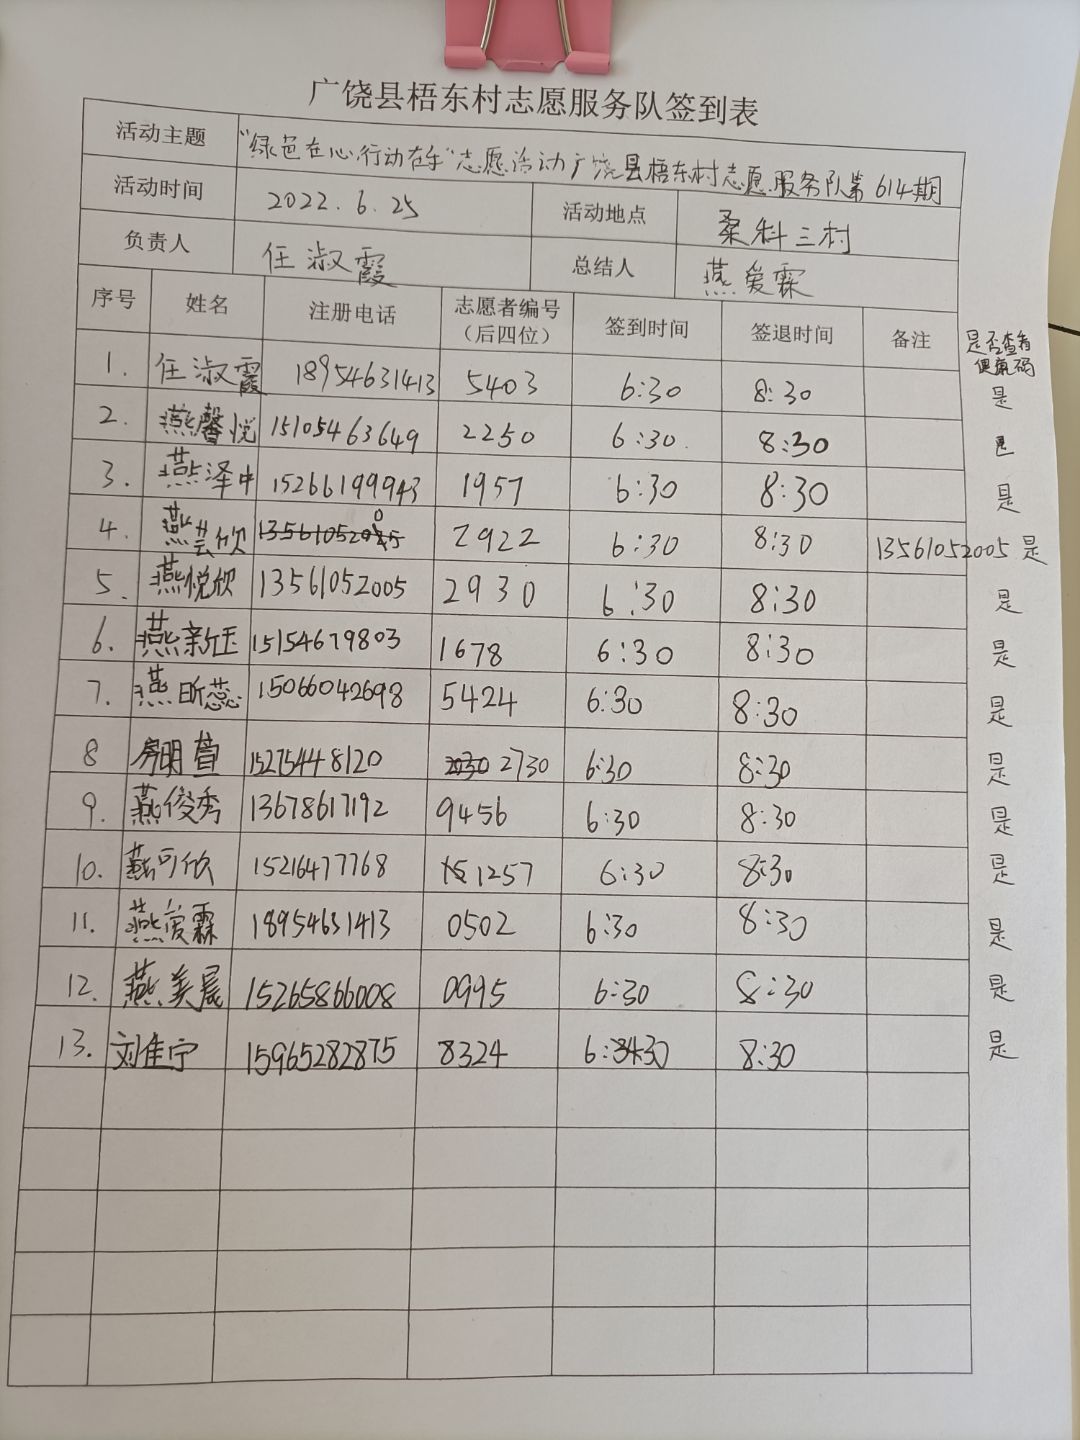 广饶县梧东村志愿服务队签到表
活动主题 “绿色在心,行动在手”志愿活动广饶县梧东村志愿服务队第614期
活动时间 2022.6.25 活动地点 桑科三村
负责人 任淑霞 总结人 燕爱霖
序号 姓名 注册电话 志愿者编号（后四位） 签到时间 签退时间 备注 是否查看健康码
1. 任淑霞 18954631413 5403 6:30 8:30 是
2. 燕馨悦 15105463649 2250 6:30 8:30 是
3. 燕泽中 15266199943 1957 6:30 8:30 是
4. 燕芸欣 2922 6:30 8:30 13561052005 是
5. 燕悦欣 13561052005 2930 6:30 8:30 是
6. 燕新玉 15154679803 1678 6:30 8:30 是
7. 燕昕蕊 15066042698 5424 6:30 8:30 是
8 房明萱 15275448120 2730 6:30 8:30 是
9. 燕俊秀 13678617192 9456 6:30 8:30 是
10. 燕可欣 15216477768 1257 6:30 8:30 是
11. 燕爱霖 18954631413 0502 6:30 8:30 是
12. 燕美晟 15265866008 0995 6:30 8:30 是
13. 刘佳宁 15965282875 8324 6:30 8:30 是